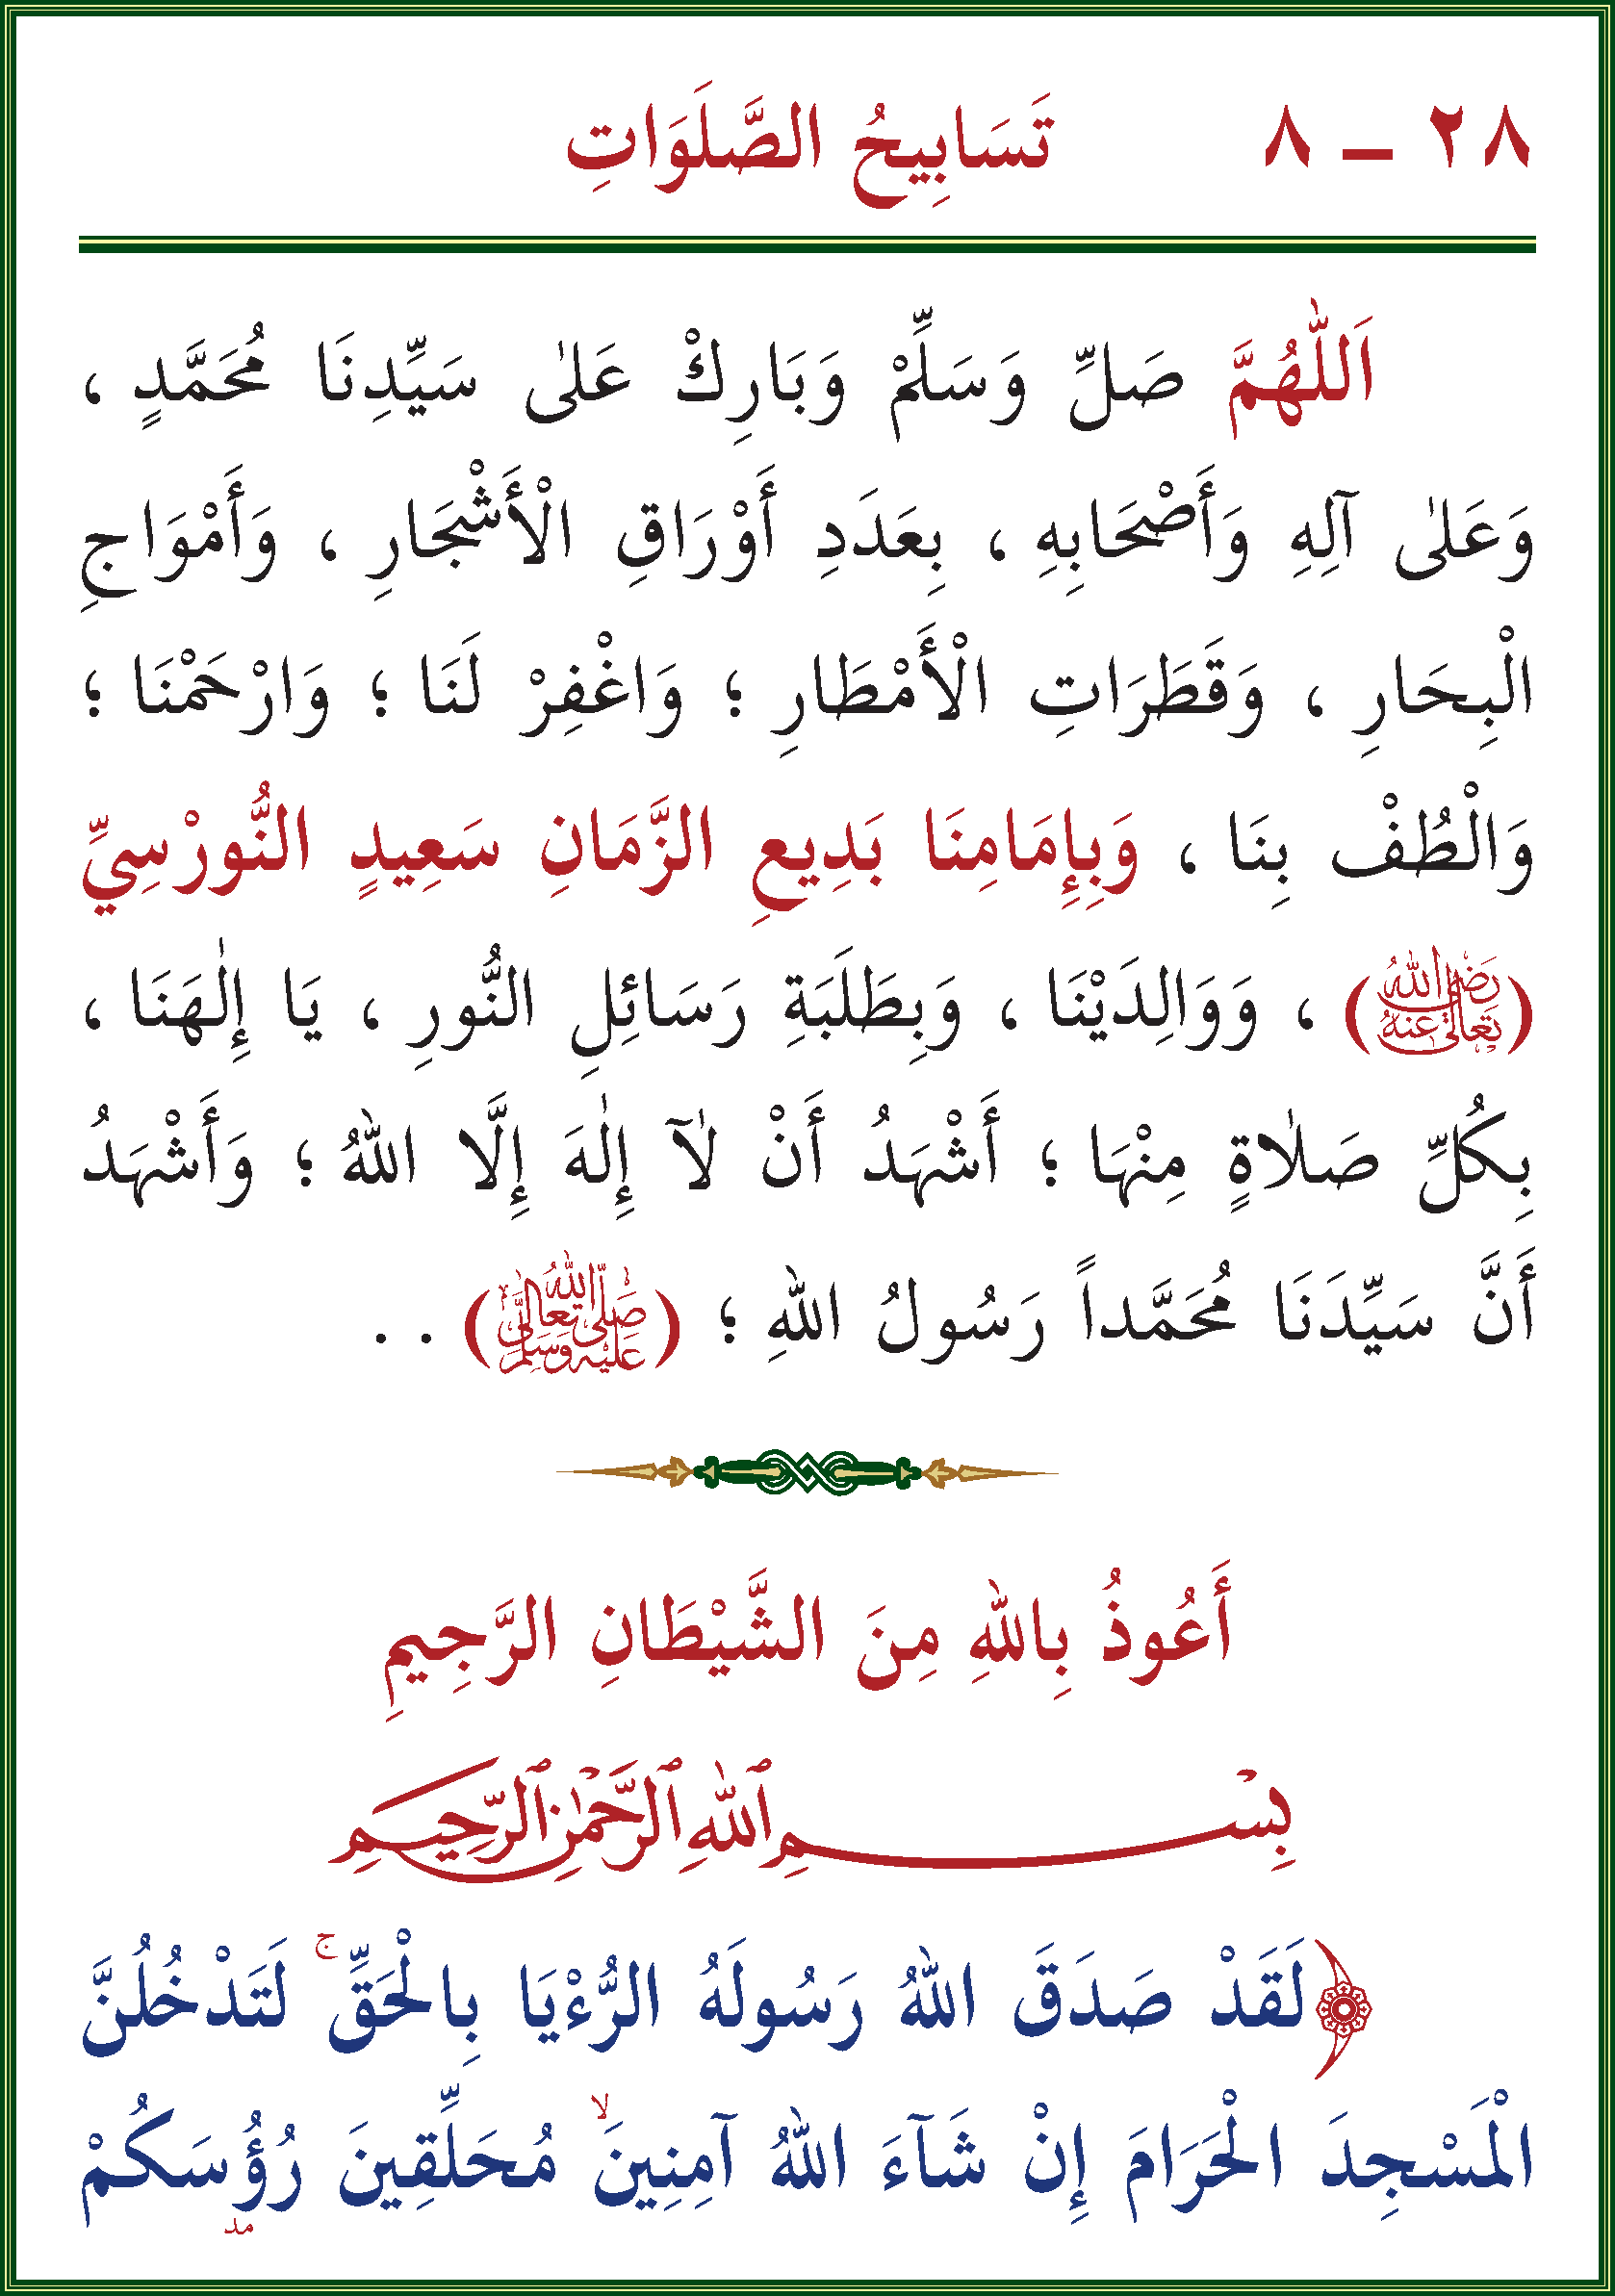 ٢٨ ـ ٨ تَسَابِيحُ الصَّلَوَاتِ
اَللّٰهُمَّ صَلِّ وَسَلِّمْ وَبَارِكْ عَلٰى سَيِّدِنَا مُحَمَّدٍ ،
وَعَلٰى آلِهِ وَأَصْحَابِهِ ، بِعَدَدِ أَوْرَاقِ الْأَشْجَارِ ، وَأَمْوَاجِ
الْبِحَارِ ، وَقَطَرَاتِ الْأَمْطَارِ ؛ وَاغْفِرْ لَنَا ؛ وَارْحَمْنَا ؛
وَالْطُفْ بِنَا ، وَبِإِمَامِنَا بَدِيعِ الزَّمَانِ سَعِيدٍ النُّورْسِيِّ
(رَضِيَ اللّٰهُ تَعَالٰى عَنْهُ) ، وَوَالِدَيْنَا ، وَبِطَلَبَةِ رَسَائِلِ النُّورِ ، يَا إِلٰهَنَا ،
بِكُلِّ صَلٰاةٍ مِنْهَا ؛ أَشْهَدُ أَنْ لٰٓا إِلٰهَ إِلَّا اللّٰهُ ؛ وَأَشْهَدُ
أَنَّ سَيِّدَنَا مُحَمَّداً رَسُولُ اللّٰهِ ؛ (صَلَّى اللّٰهُ تَعَالٰى عَلَيْهِ وَسَلَّمَ) . .
أَعُوذُ بِاللّٰهِ مِنَ الشَّيْطَانِ الرَّجِيمِ
بِسْــــــمِ ٱللّٰهِ ٱلرَّحْمٰنِ ٱلرَّحِيمِ
﴿لَقَدْ صَدَقَ اللّٰهُ رَسُولَهُ الرُّءْيَا بِالْحَقِّۚ لَتَدْخُلُنَّ
الْمَسْجِدَ الْحَرَامَ إِنْ شَآءَ اللّٰهُ آمِنِينَۙ مُحَلِّقِينَ رُؤُسَكُمْ
مد